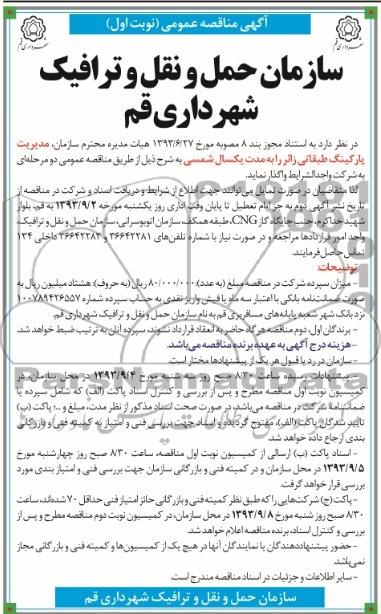 آگهی مناقصه عمومی (نوبت اول)
شهرداری قم
شهرداری قم
سازمان حمل و نقل و ترافیک
شهرداری قم
در نظر دارد به استناد مجوز بند ۸ مصوبه مورخ ۱۳۹۳/۶/۲۷ هیات مدیره محترم سازمان، مدیریت
پارکینگ طبقاتی زائر را به مدت یکسال شمسی به شرح ذیل از طریق مناقصه عمومی دو مرحله‌ای
به شرکت واجدالشرایط واگذار نماید.
لذا متقاضیان در صورت تمایل می‌توانند جهت اطلاع از شرایط و دریافت اسناد و شرکت در مناقصه از
تاریخ نشر آگهی دوم به جز ایام تعطیل تا پایان وقت اداری روز یکشنبه مورخه ۱۳۹۳/۹/۲ به قم، بلوار
شهید خداکرم، جنب جایگاه گاز CNG، طبقه همکف، سازمان اتوبوسرانی، سازمان حمل و نقل و ترافیک،
واحد امور قراردادها مراجعه و در صورت نیاز با شماره تلفن‌های ۳۶۶۴۲۲۸۱ و ۳۶۶۴۲۲۸۳ داخلی ۱۳۴
تماس حاصل فرمایند.
توضیحات:
- میزان سپرده شرکت در مناقصه مبلغ (به عدد): ۸۰/۰۰۰/۰۰۰ ریال (به حروف): هشتاد میلیون ریال به
صورت ضمانت‌نامه بانکی با اعتبار سه ماه یا فیش واریز نقدی به حساب سپرده شماره ۱۰۰۷۸۹۴۲۶۵۵۷
نزد بانک شهر شعبه پایانه‌های مسافربری قم به نام سازمان حمل و نقل و ترافیک شهرداری قم.
- برندگان اول، دوم مناقصه هرگاه حاضر به انعقاد قرارداد نشوند، سپرده آنان به ترتیب ضبط خواهد شد.
- هزینه درج آگهی به عهده برنده مناقصه می‌باشد.
- سازمان در رد یا قبول هر یک از پیشنهادها مختار است.
- پیشنهادات رسیده ساعت ۸/۳۰ صبح روز سه شنبه مورخ ۱۳۹۳/۹/۴ در محل سازمان، در
کمیسیون نوبت اول مناقصه مطرح و پس از بررسی و کنترل اسناد پاکت (الف) که شامل سپرده یا
ضمانتنامه شرکت در مناقصه می‌باشد، در صورت صحت اسناد مذکور از نظر مدت، مبلغ و ... پاکت (ب)
تایید شدگان پاکت (الف)، مفتوح گردیده و اسناد جهت بررسی فنی و امتیاز به کمیته فنی و بازرگانی
بندی ارجاع داده خواهد شد.
- اسناد پاکت (ب) ارسالی از کمیسیون نوبت اول مناقصه، ساعت ۸/۳۰ صبح روز چهارشنبه مورخ
۱۳۹۳/۹/۵ در محل سازمان و در کمیته فنی و بازرگانی سازمان جهت بررسی فنی و امتیاز بندی مورد
بررسی قرار خواهد گرفت.
- پاکت (ج) شرکت‌هایی را که طبق نظر کمیته فنی و بازرگانی حائز امتیاز فنی حداقل ۷۰ شده‌اند، ساعت
۸/۳۰ صبح روز شنبه مورخ ۱۳۹۳/۹/۸ در محل سازمان، در کمیسیون نوبت دوم مناقصه مطرح و پس از
بررسی و کنترل اسناد، برنده مناقصه اعلام خواهد شد.
- حضور پیشنهاددهندگان یا نمایندگان آنها در هیچ یک از کمیسیون‌ها و کمیته فنی و بازرگانی مجاز
نمی‌باشد.
- سایر اطلاعات و جزئیات در اسناد مناقصه مندرج است.
سازمان حمل و نقل و ترافیک شهرداری قم